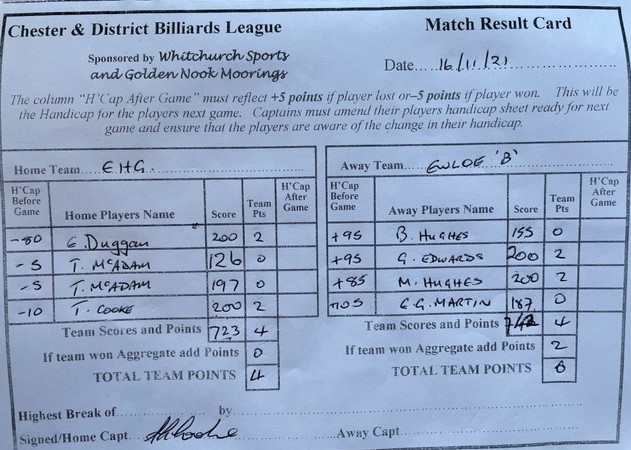 Chester & District Billiards League
Match Result Card
Sponsored by Whitchurch Sports
and Golden Nook Moorings
Date 16/11/21
The column "H'Cap After Game" must reflect +5 points if player lost or –5 points if player won. This will be
the Handicap for the players next game. Captains must amend their players handicap sheet ready for next
game and ensure that the players are aware of the change in their handicap.
Home Team E.H.G.
H'Cap Before Game Home Players Name Score Team Pts H'Cap After Game
-80 E. Duggan 200 2
-5 T. McADAM 126 0
-5 T. McADAM 197 0
-10 T. COOKE 200 2
Team Scores and Points 723 4
If team won Aggregate add Points 0
TOTAL TEAM POINTS 4
Away Team EWLOE 'B'
H'Cap Before Game Away Players Name Score Team Pts H'Cap After Game
+95 B. HUGHES 155 0
+95 G. EDWARDS 200 2
+85 M. HUGHES 200 2
G.G. MARTIN 187 0
Team Scores and Points 742 4
If team won Aggregate add Points 2
TOTAL TEAM POINTS 6
Highest Break of by
Signed/Home Capt.
Away Capt.